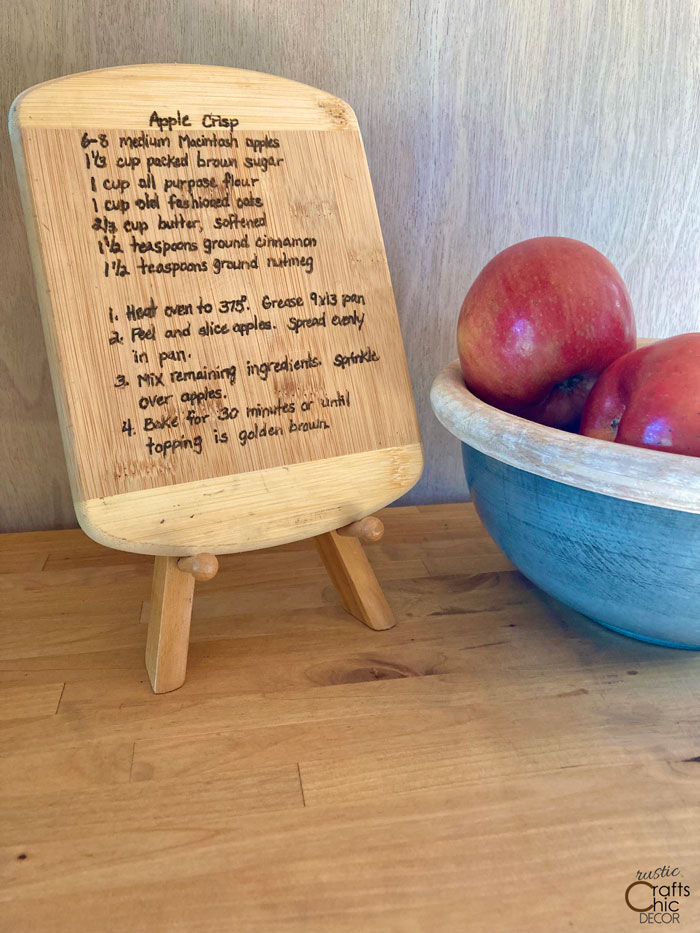 Apple Crisp
6-8 medium Macintosh apples
1 1/3 cup packed brown sugar
1 cup all purpose flour
1 cup old fashioned oats
2/3 cup butter, softened
1 1/2 teaspoons ground cinnamon
1 1/2 teaspoons ground nutmeg
1. Heat oven to 375°. Grease 9x13 pan
2. Peel and slice apples. Spread evenly
in pan.
3. Mix remaining ingredients. Sprinkle
over apples.
4. Bake for 30 minutes or until
topping is golden brown.
rustic
Crafts
Chic
DECOR